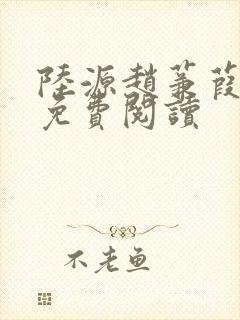 陸源趙蒹葭
免費閱讀
不老鱼